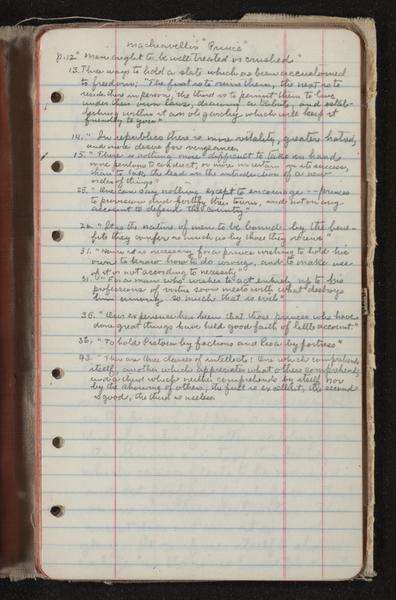 Machiavelli's "Prince"
p. 12 "Men ought to be well treated or crushed"
13. Three ways to hold a state which has been accustomed
to freedom; "The first is to ruin them, the next is to
reside there in person, the third is to permit them to live
under their own laws, drawing a tribute, and estab-
lishing within it an oligarchy which will keep it
friendly to you"
14. "In republics there is more vitality, greater hatred,
and more desire for vengeance
15. "There is nothing more difficult to take in hand
more perilous to conduct, or more uncertain in its success,
than to take the lead in the introduction of a new
order of things"
25. "One can say nothing except to encourage -- princes
to provision and fortify their towns, and not on any
account to defend the country."
"It is the nature of men to be bound by the bene-
fits they confer as much as by those they receive"
31. "Hence it is necessary for a prince wishing to hold his
own to know how to do wrong, and to make use
of it or not according to necessity
31. "For a man who wishes to act entirely up to his
professions of virtue soon meets with what destroys
him among so much that is evil"
36. "Our experience has been that those princes who have
done great things have held good faith of little account."
"To hold Pistoia by factions and Pisa by fortress"
43. "There are three classes of intellects: One which comprehends
itself, another which appreciates what others comprehend,
and a third which neither comprehends by itself nor
by the showing of others; the first is excellent, the second
is good, the third is useless.